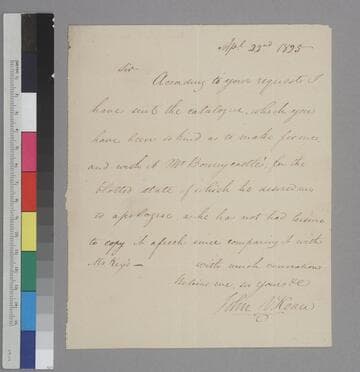 Apl 22nd 1825
Sir
According to your request I
have sent the catalogue, which you
have been so kind as to make for me
and with it Mr Bonnycastle's for the
blotted state of which he desired me
to apologise as he has not had leisure
to copy it afresh since comparing it with
with much
believe me, Sir yours &c
John